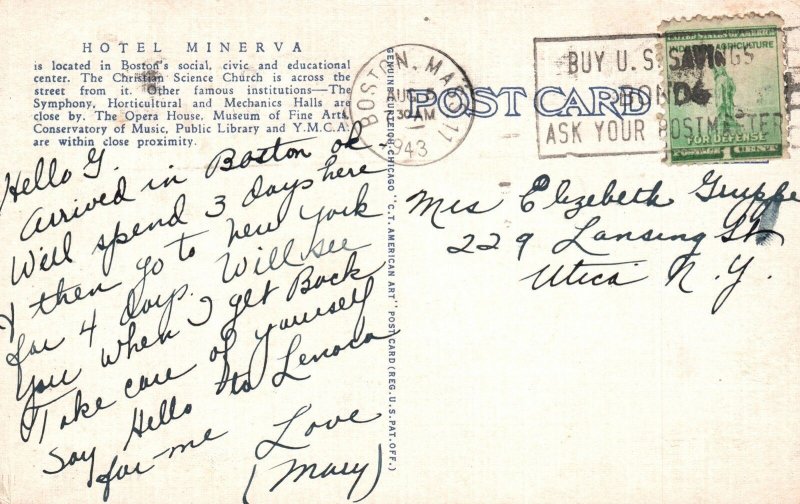 HOTEL MINERVA
is located in Boston's social, civic and educational
center. The Christian Science Church is across the
street from it. Other famous institutions—The
Symphony, Horticultural and Mechanics Halls are
close by. The Opera House, Museum of Fine Arts
Conservatory of Music, Public Library and Y.M.C.A.
are within close proximity.
Hello G.
Arrived in Boston ok
Will spend 3 days here
& then go to New York
for 4 days. Will see
you when I get Back
Take care of yourself
Say Hello to Lenora
for me
Love
(Mary)
GENUINE CURTEICH-CHICAGO "C.T. AMERICAN ART" POST CARD (REG. U.S. PAT. OFF.)
BOSTON, MASS. 11
AUG 5
30 AM
1943
POST CARD
BUY U.S. SAVINGS
BONDS
ASK YOUR POSTMASTER
UNITED STATES OF AMERICA
INDUSTRY AGRICULTURE
FOR DEFENSE
POSTAGE 1 CENT
Mrs Elizabeth Gruppe
229 Lansing St
Utica N.Y.